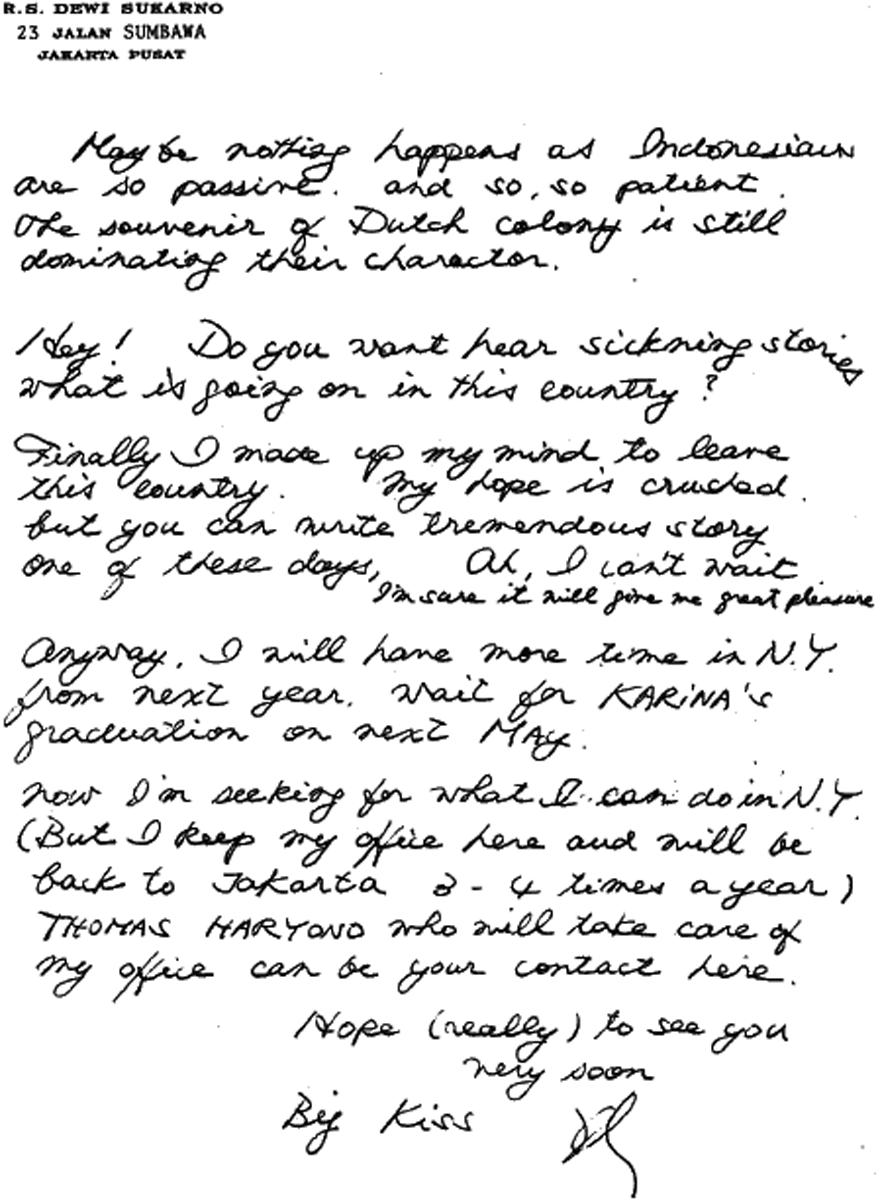 R.S. DEWI SUKARNO
23 JALAN SUMBAWA
JAKARTA PUSAT
Maybe nothing happens as Indonesians
are so passive. and so, so patient.
The souvenir of Dutch colony is still
dominating their charactor.
Hey! Do you want hear sickning stories
what is going on in this country?
Finally I made up my mind to leave
this country. My hope is crushed.
but you can write tremendous story
one of these days, Ah, I can't wait
I'm sure it will give me great pleasure
Anyway, I will have more time in N.Y.
from next year. Wait for KARiNA's
graduation on next MAy.
now I'm seeking for what I can do in N.Y.
(But I keep my office here and will be
back to Jakarta 3-4 times a year)
THOMAS HARYONO who will take care of
my office can be your contact here.
Hope (really) to see you
very soon
Big Kiss